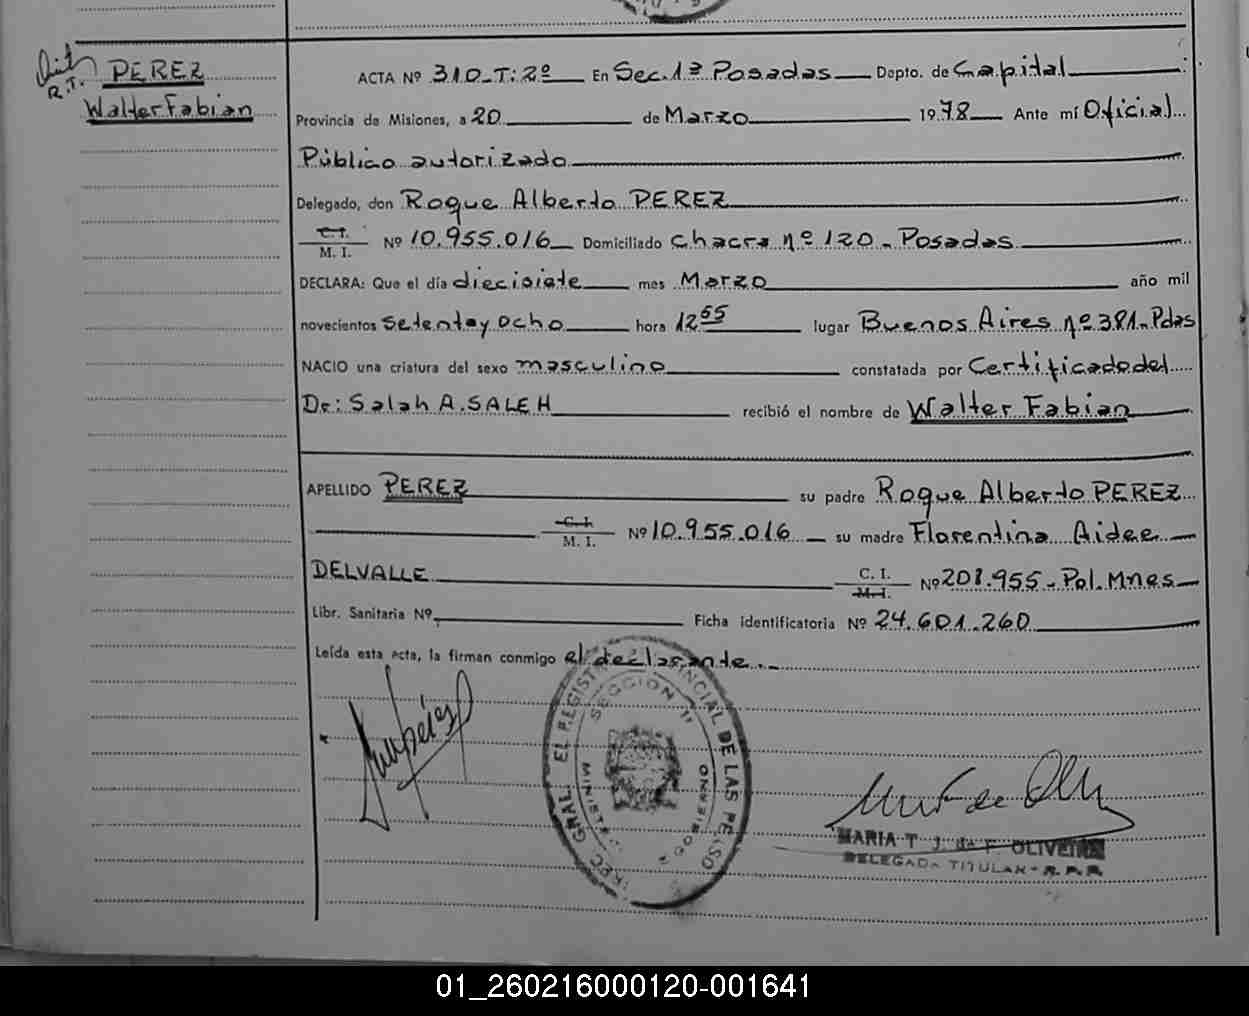 PEREZ
R.T.
Walter Fabian
ACTA Nº 310-T:2º En Sec.1ª Posadas Depto. de Capital
Provincia de Misiones, a 20 de Marzo 1978 Ante mí Oficial
Público autorizado
Delegado, don Roque Alberto PEREZ
C.I.
M. I. Nº 10.955.016 Domiciliado chacra nº 120 - Posadas
DECLARA: Que el día diecisiete mes Marzo año mil
novecientos Setenta y ocho hora 12 55 lugar Buenos Aires nº 381 - Pdas
NACIO una criatura del sexo masculino constatada por Certificado del
Dr: Salah A. SALEH recibió el nombre de Walter Fabian
APELLIDO PEREZ su padre Roque Alberto PEREZ
C.I.
M. I. Nº 10.955.016 su madre Florentina Aidee
DELVALLE C. I. Nº 201.955 - Pol. Mnes
M.I.
Libr. Sanitaria Nº Ficha identificatoria Nº 24.601.260
Leída esta acta, la firman conmigo el declarante.
SECCION 1ª
PROVINCIAL DE LAS PERSO
MARIA T. J. de F. OLIVEIRA
DELEGADA TITULAR - R.P.P.
01_260216000120-001641